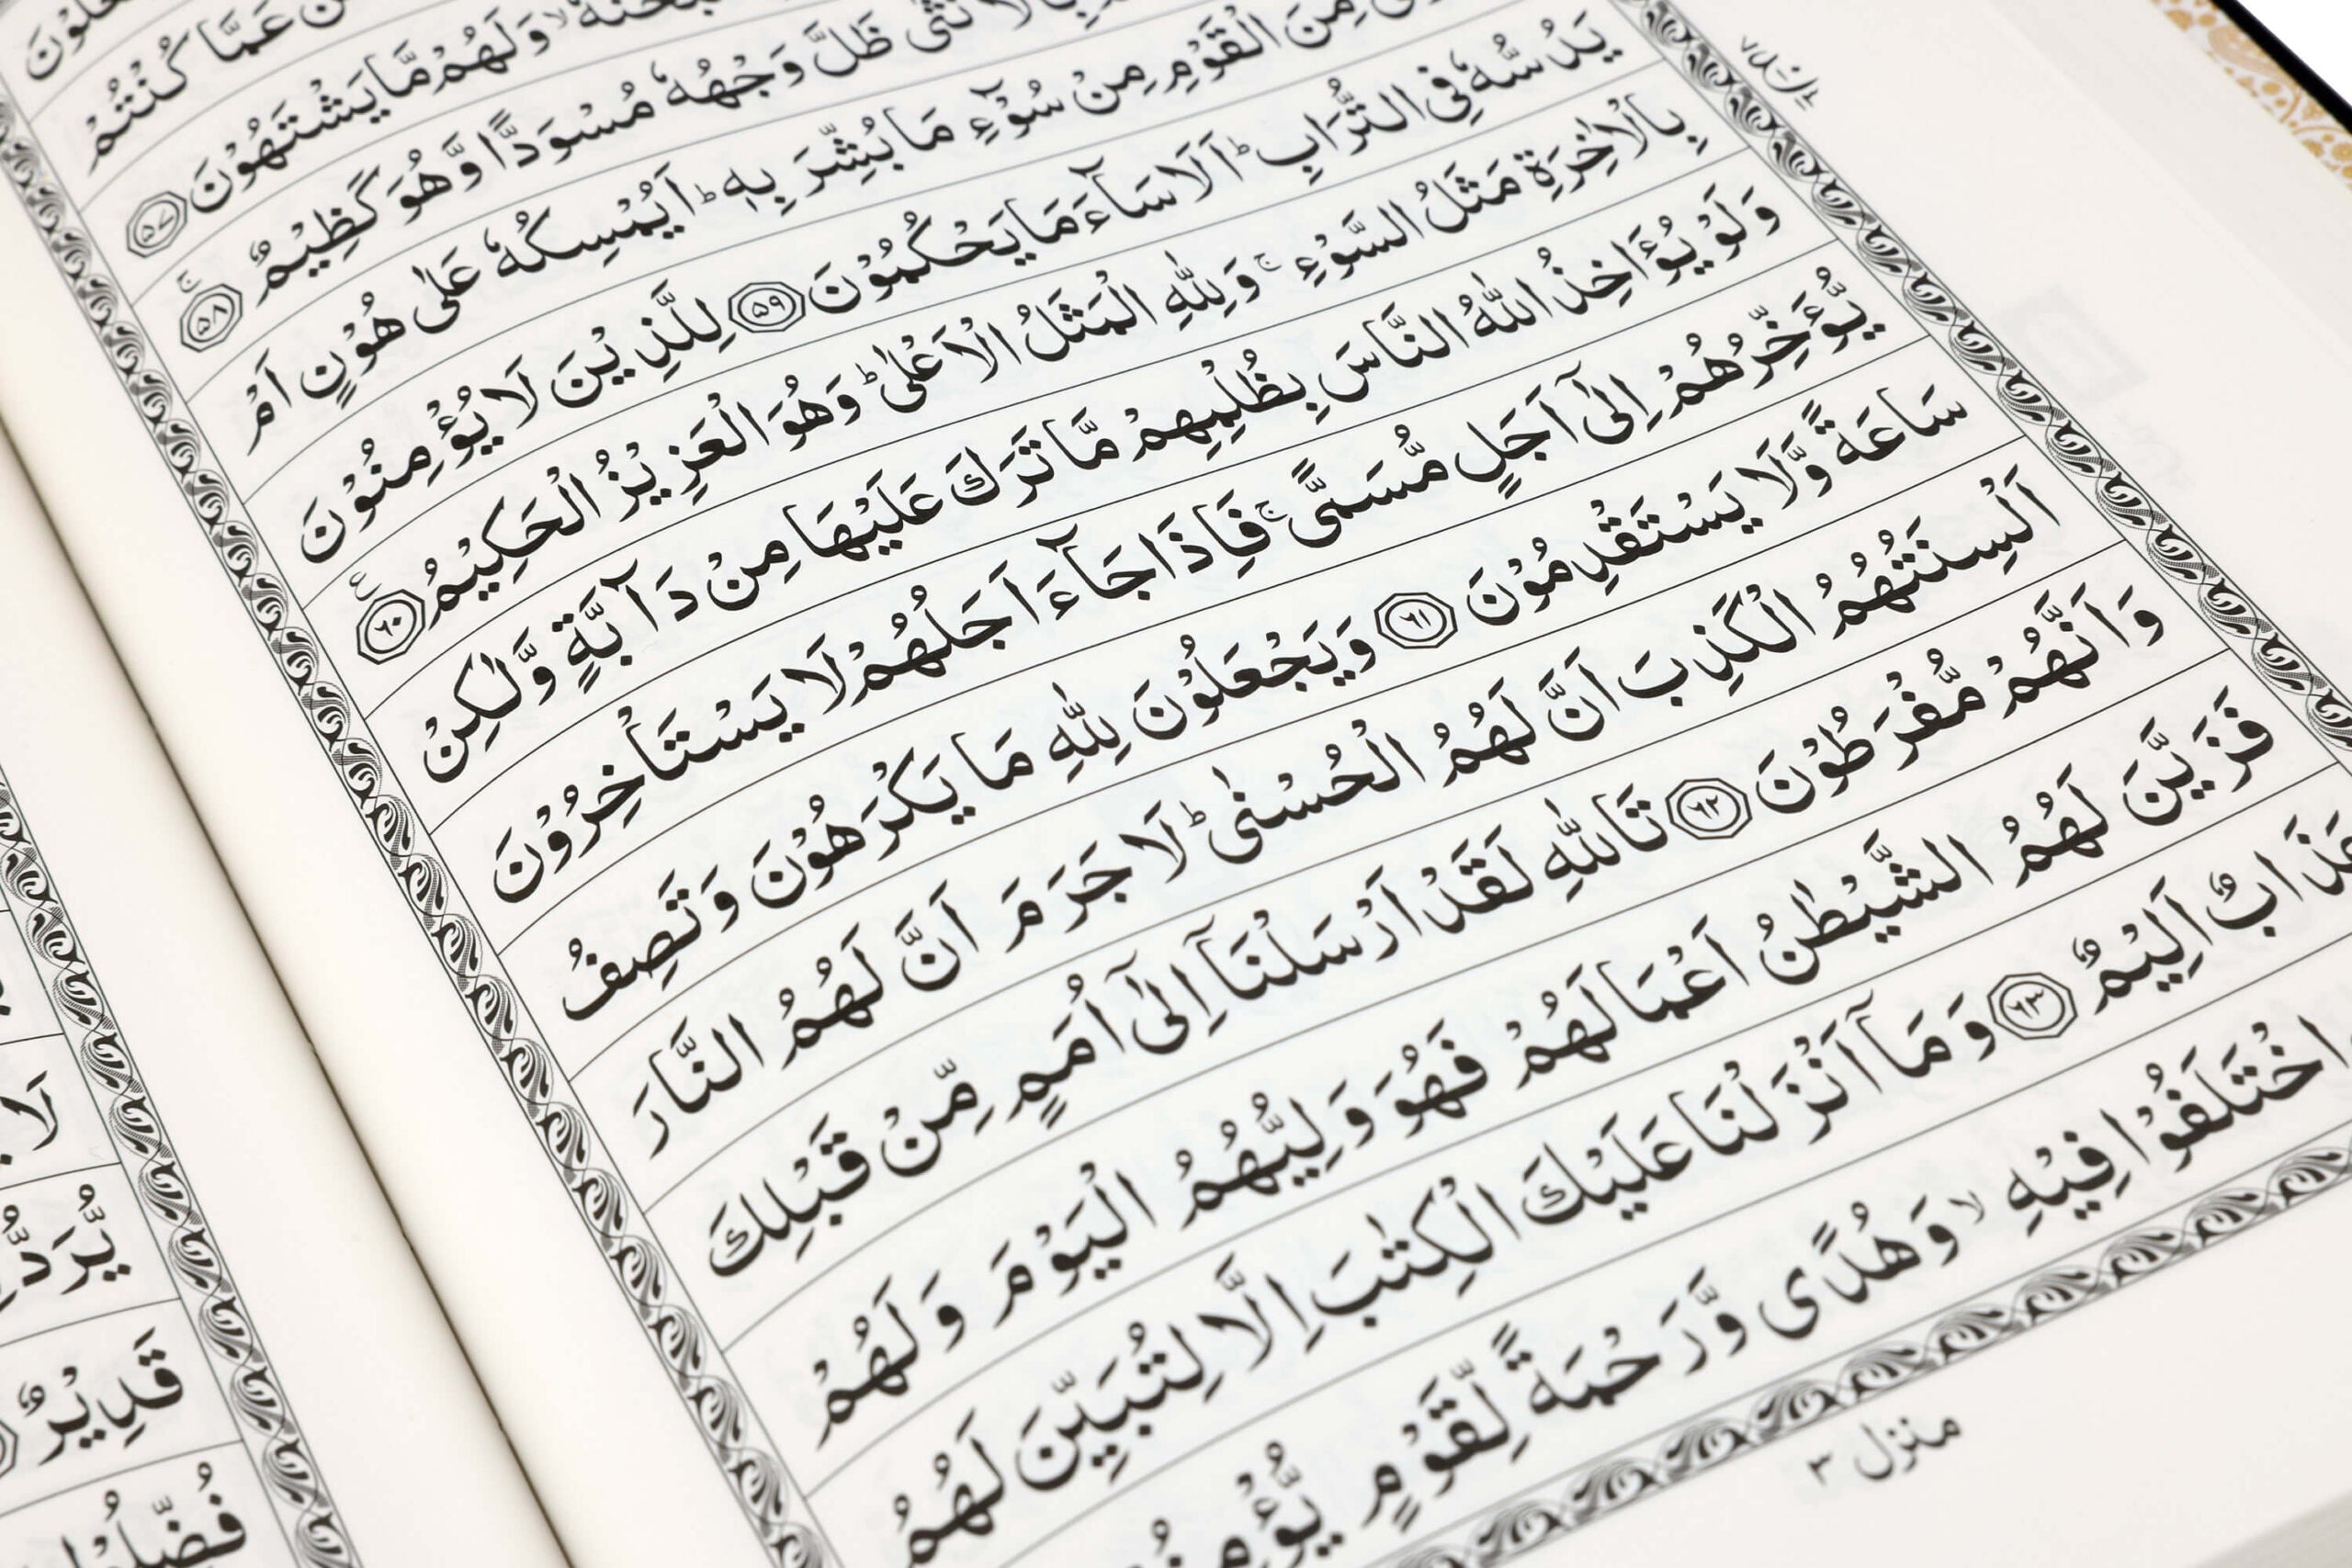 عَمَّا كُنْتُمْ
وَلَهُمْ مَّا يَشْتَهُوْنَ ۵۷
ظَلَّ وَجْهُهٗ مُسْوَدًّا وَّهُوَ كَظِيْمٌ ۵۸
مِنَ الْقَوْمِ مِنْ سُوْٓءِ مَا بُشِّرَ بِهٖ ؕ اَيُمْسِكُهٗ عَلٰى هُوْنٍ اَمْ
يَدُسُّهٗ فِى التُّرَابِ ؕ اَلَا سَآءَ مَا يَحْكُمُوْنَ ۵۹ لِلَّذِيْنَ لَا يُؤْمِنُوْنَ
بِالْاٰخِرَةِ مَثَلُ السَّوْءِ ۚ وَلِلّٰهِ الْمَثَلُ الْاَعْلٰى ؕ وَهُوَ الْعَزِيْزُ الْحَكِيْمُ ۶۰
وَلَوْ يُؤَاخِذُ اللّٰهُ النَّاسَ بِظُلْمِهِمْ مَّا تَرَكَ عَلَيْهَا مِنْ دَآبَّةٍ وَّلٰكِنْ
يُّؤَخِّرُهُمْ اِلٰٓى اَجَلٍ مُّسَمًّى ۚ فَاِذَا جَآءَ اَجَلُهُمْ لَا يَسْتَاْخِرُوْنَ
سَاعَةً وَّلَا يَسْتَقْدِمُوْنَ ۶۱ وَيَجْعَلُوْنَ لِلّٰهِ مَا يَكْرَهُوْنَ وَتَصِفُ
اَلْسِنَتُهُمُ الْكَذِبَ اَنَّ لَهُمُ الْحُسْنٰى ؕ لَا جَرَمَ اَنَّ لَهُمُ النَّارَ
وَاَنَّهُمْ مُّفْرَطُوْنَ ۶۲ تَاللّٰهِ لَقَدْ اَرْسَلْنَآ اِلٰٓى اُمَمٍ مِّنْ قَبْلِكَ
فَزَيَّنَ لَهُمُ الشَّيْطٰنُ اَعْمَالَهُمْ فَهُوَ وَلِيُّهُمُ الْيَوْمَ وَلَهُمْ
عَذَابٌ اَلِيْمٌ ۶۳ وَمَآ اَنْزَلْنَا عَلَيْكَ الْكِتٰبَ اِلَّا لِتُبَيِّنَ لَهُمُ
اخْتَلَفُوْا فِيْهِ ۙ وَهُدًى وَّرَحْمَةً لِّقَوْمٍ
منزل ۳
لَا
يُّرَدُّ
قَدِيْرٌ
فُضِّلُوْا